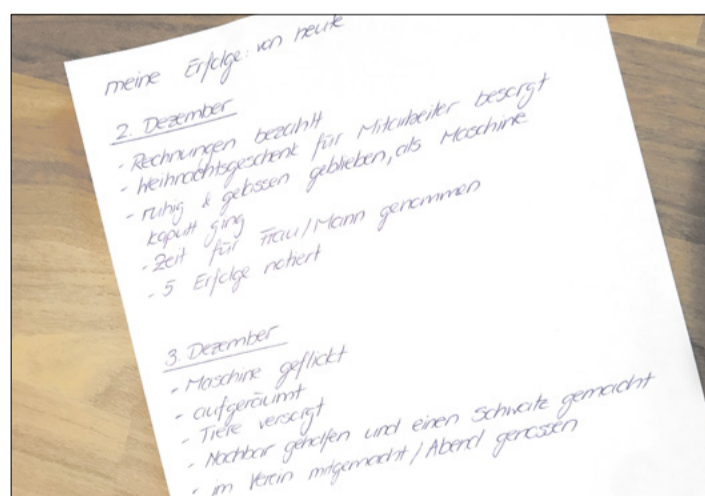 meine Erfolge: von heute
2. Dezember
- Rechnungen bezahlt
- Weihnachtsgeschenk für Mitarbeiter besorgt
- ruhig & gelassen geblieben, als Maschine
kaputt ging
- Zeit für Frau/Mann genommen
- 5 Erfolge notiert
3. Dezember
- Maschine geflickt
- aufgeräumt
- Tiere versorgt
- Nachbar geholfen und einen Schwatz gemacht
- im Verein mitgemacht / Abend genossen